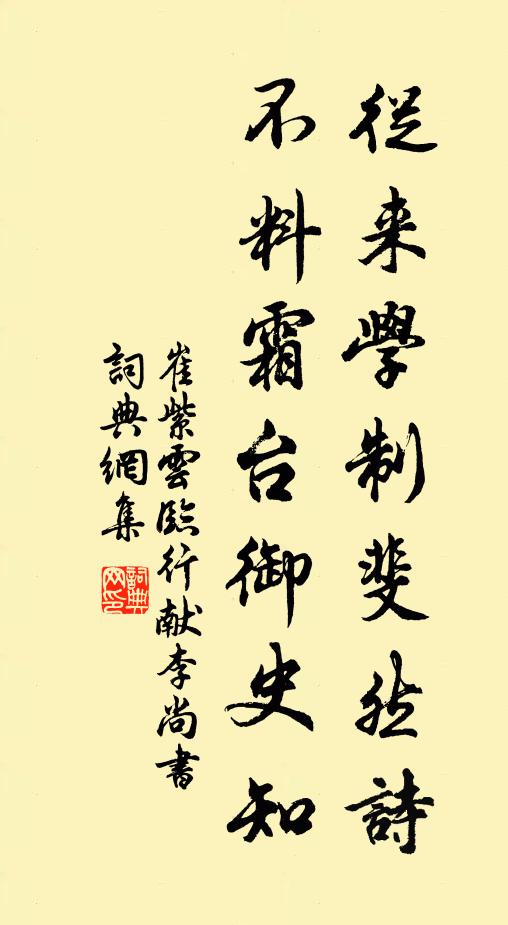 從来學制斐然詩
不料霜台御史知
崔紫雲臨行献李尚書
詞典網集
詞典网印